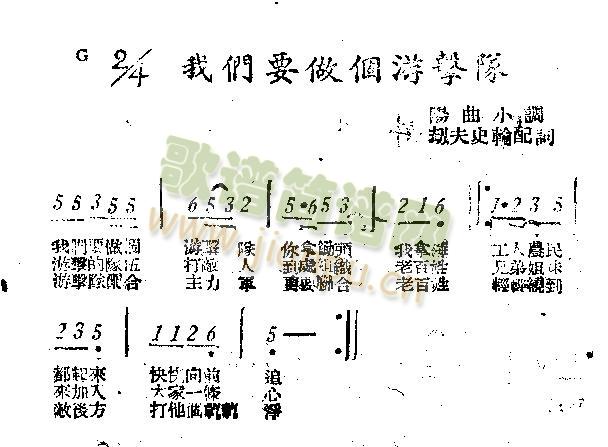 G 2/4 我們要做個游擊隊
陽曲小調
劫夫史輪配詞
5 5 3 5 5 | 6 5 3 2 | 5·6 5 3 | 2 1 6 | 1·2 3 5
我們要做個 游擊 隊 你拿鋤頭 我拿 工人農民
游擊的隊伍 打敵 人 到處 老百姓 兄弟姐妹
游擊隊配合 主力 軍 更要聯合 老百姓 到
2 3 5 | 1 1 2 6 | 5 — |
都起來 快快向前 追
來加入 大家一條 心
敵後方 打他個 淨
歌谱简谱网